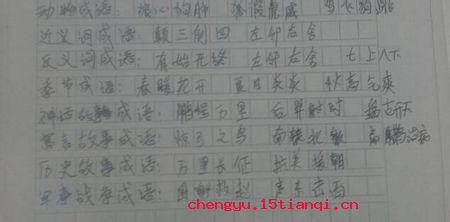 动物成语: 狼心狗肺 狐假虎威
近义词成语: 颠三倒四 左邻右舍
反义词成语: 有始无终 左邻右舍 七上八下
季节成语: 春暖花开 夏日炎炎 秋高气爽
神话故事成语: 鹏程万里 后羿射日
寓言故事成语: 惊弓之鸟 南辕北辙
历史故事成语: 万里长征
军事战争成语: 围魏救赵 声东击西
chengyu.15tianqi.cn